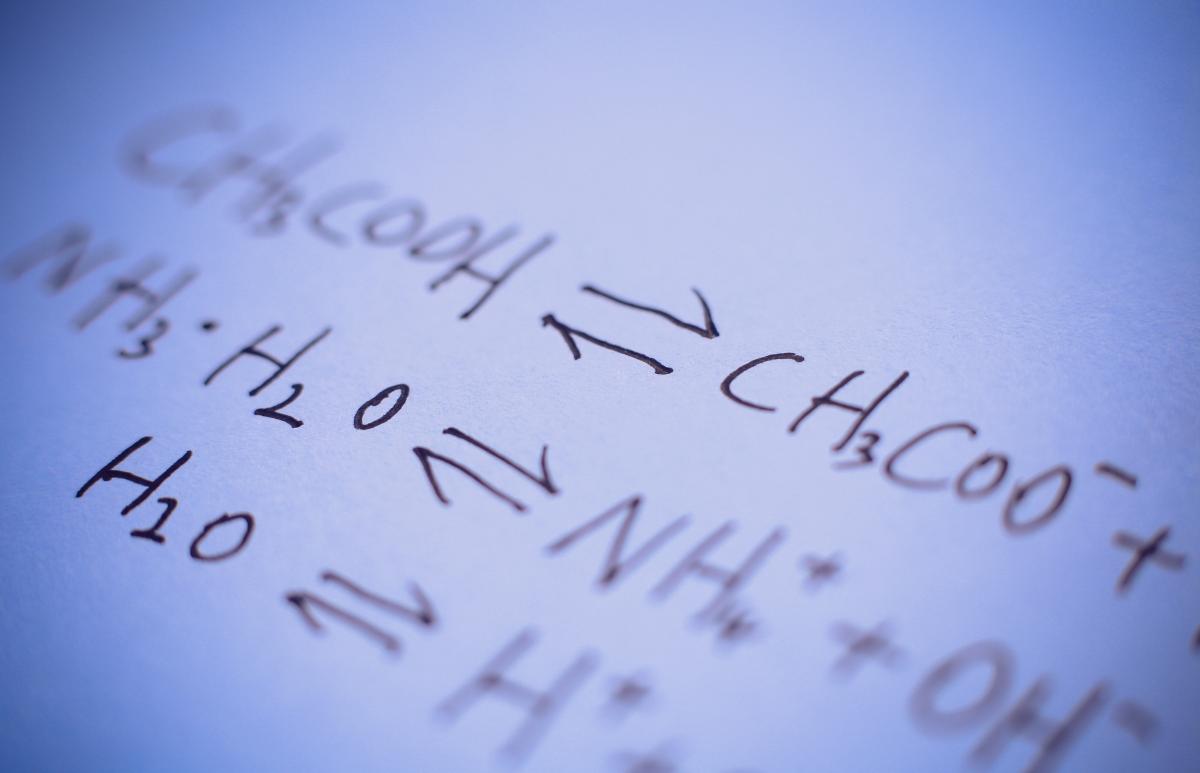 CH₃COOH ⇌ CH₃COO⁻ +
NH₃·H₂O ⇌ NH₄⁺ + OH⁻
H₂O ⇌ H⁺ +